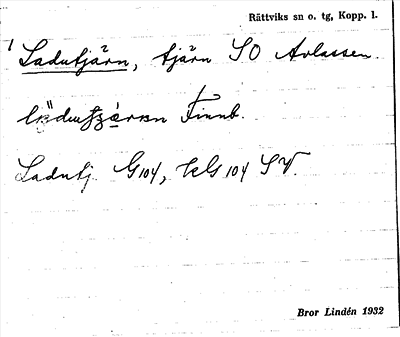 Rättviks sn o. tg, Kopp. l.
1 Ladutjärn, tjärn SO Arlassen.
Finnb.
Ladutj. G104, KlG 104 SV.
Bror Lindén 1932